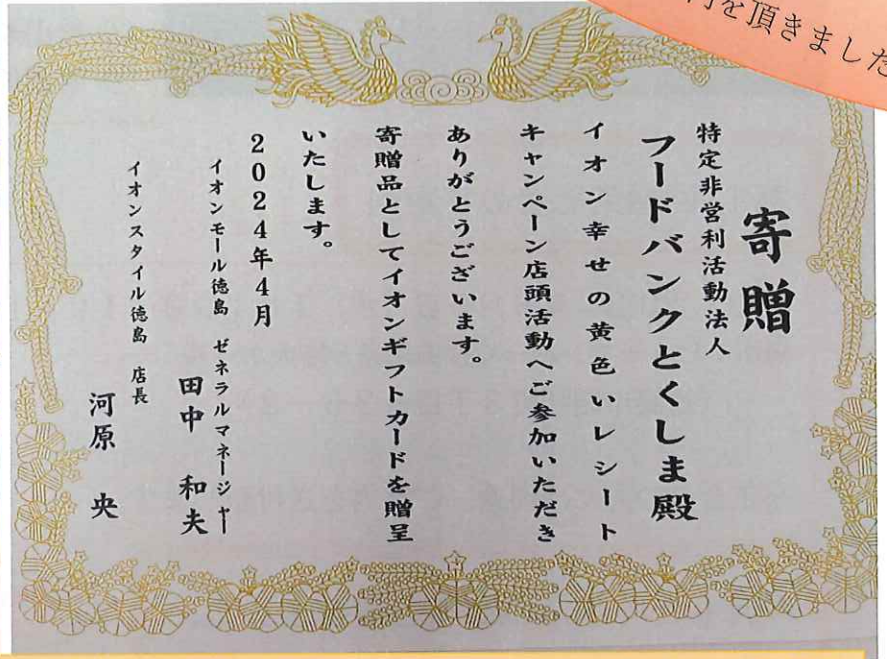 を頂きました
寄贈
特定非営利活動法人
フードバンクとくしま殿
イオン幸せの黄色いレシート
キャンペーン店頭活動へご参加いただき
ありがとうございます。
寄贈品としてイオンギフトカードを贈呈
いたします。
2024年4月
イオンモール徳島 ゼネラルマネージャー
田中 和夫
イオンスタイル徳島 店長
河原 央